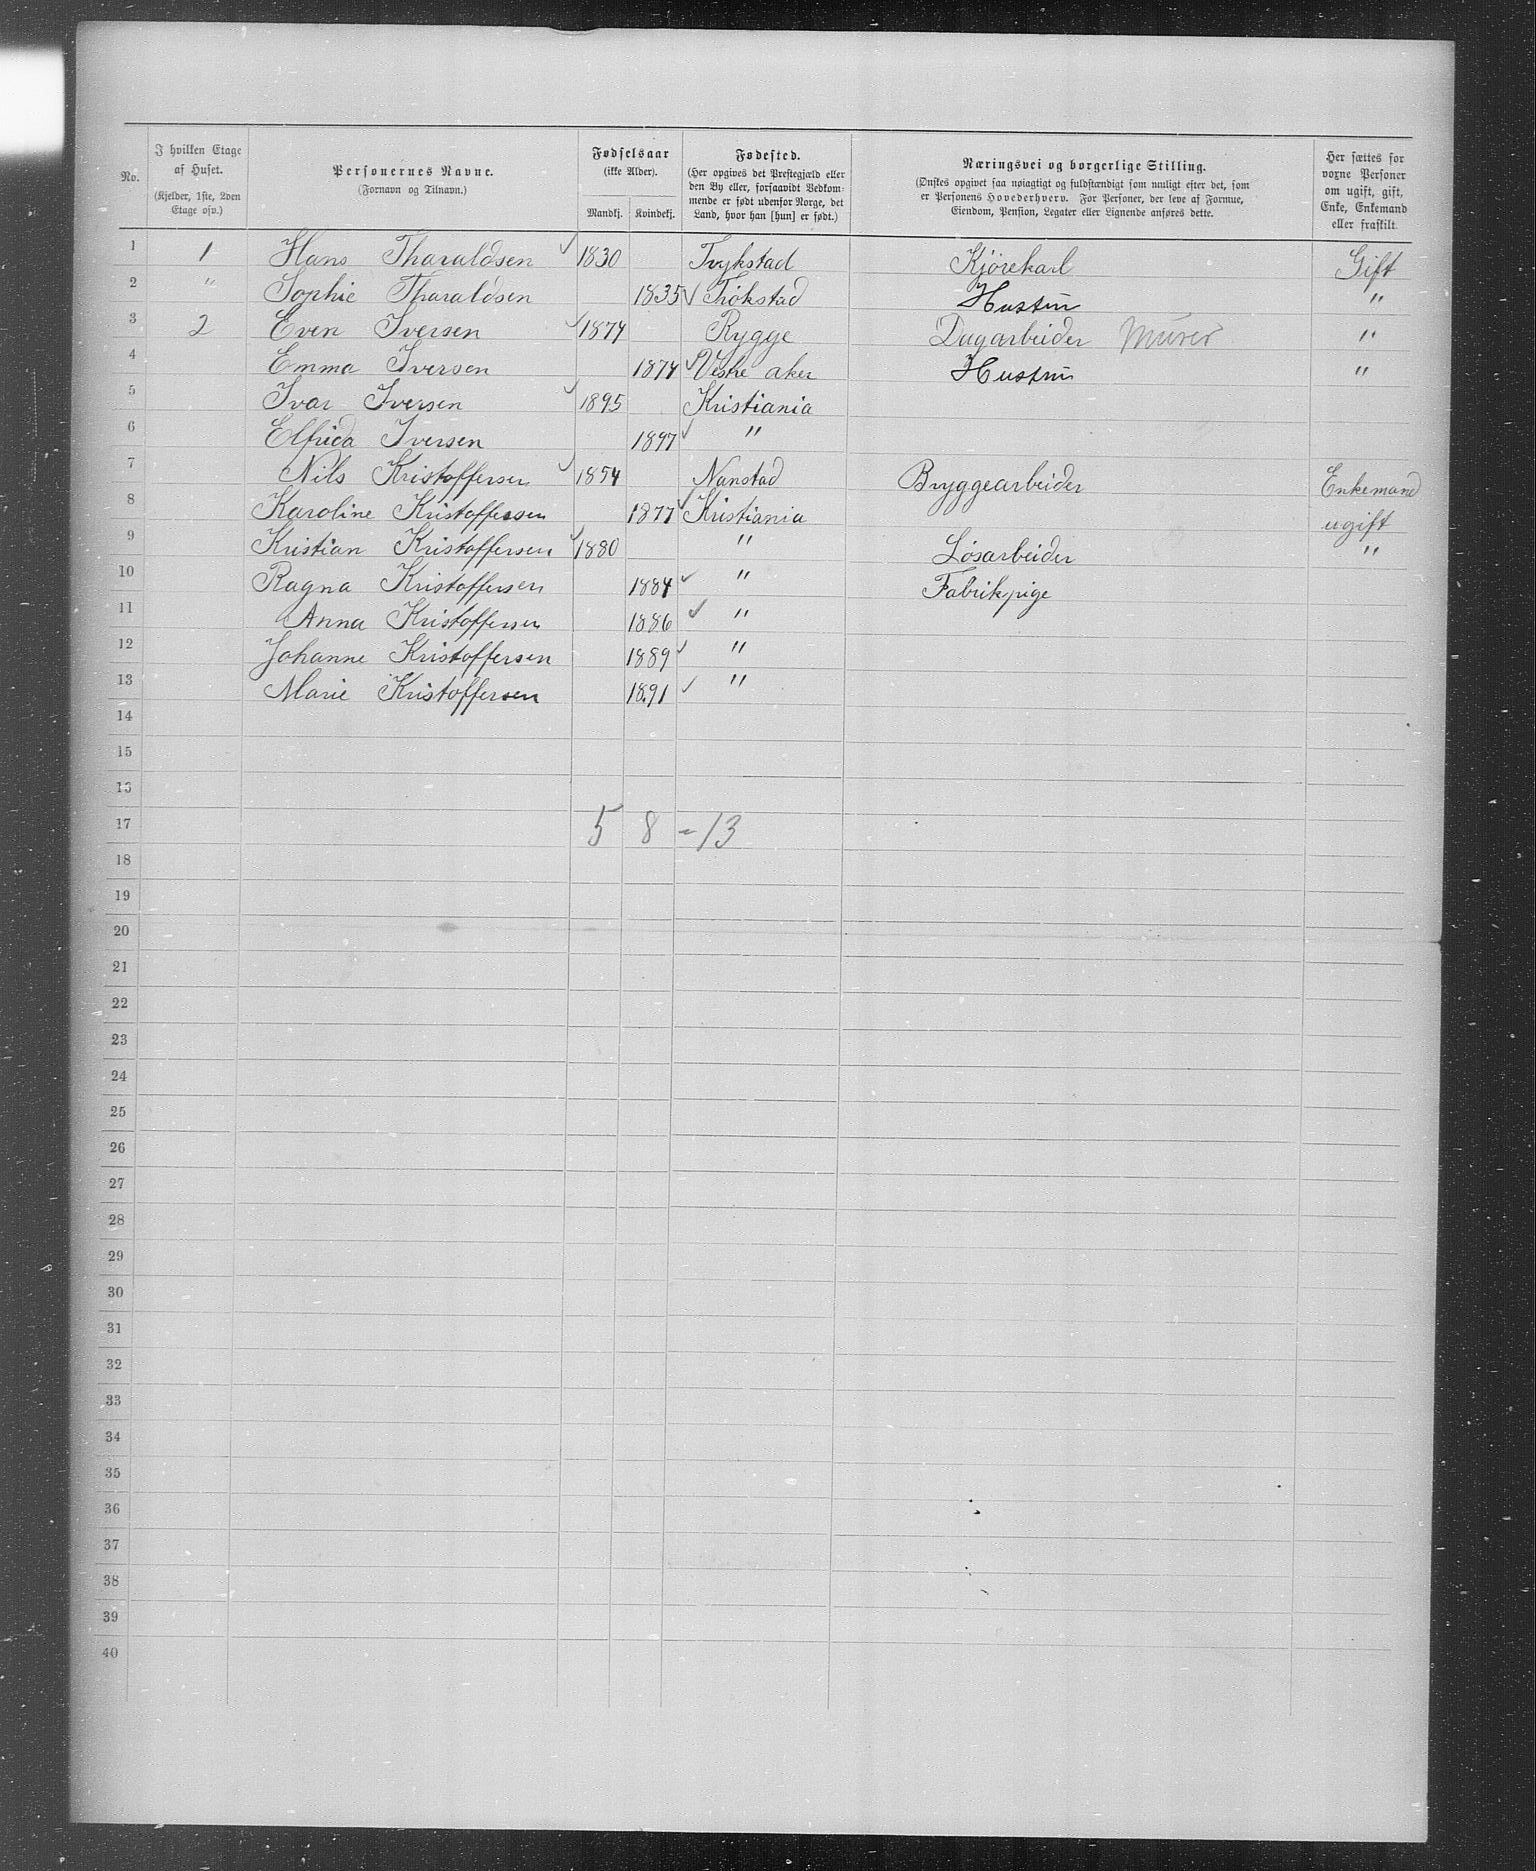 No. I hvilken Etage af Huset. (Kjelder, 1ste, 2den Etage osv.) Personernes Navne. (Fornavn og Tilnavn.) Fødselsaar (ikke Alder). Mandkj. Kvindekj. Fødested. (Her opgives det Prestegjæld eller den By eller, forsaavidt Vedkommende er født udenfor Norge, det Land, hvor han [hun] er født.) Næringsvei og borgerlige Stilling. (Ønskes opgivet saa nøiagtigt og fuldstændigt som muligt efter det, som er Personens Hovederhverv. For Personer, der leve af Formue, Eiendom, Pension, Legater eller Lignende anføres dette. Her sættes for voxne Personer om ugift, gift, Enke, Enkemand eller fraskilt.
1 1 Hans Tharaldsen 1830 Trykstad Kjörekarl Gift
2 " Sophie Tharaldsen 1835 Trökstad Hustru "
3 2 Even Iversen 1874 Rygge Dagarbeider Murer "
4 Emma Iversen 1874 Vestre aker Hustru "
5 Ivar Iversen 1895 Kristiania
6 Elfrida Iversen 1897 "
7 Nils Kristoffersen 1854 Nanstad Bryggearbeider Enkemand
8 Karoline Kristoffersen 1877 Kristiania ugift
9 Kristian Kristoffersen 1880 " Lösarbeider "
10 Ragna Kristoffersen 1884 " Fabrikpige
11 Anna Kristoffersen 1886 "
12 Johanne Kristoffersen 1889 "
13 Marie Kristoffersen 1891 "
14
15
16
17 5 8 = 13
18
19
20
21
22
23
24
25
26
27
28
29
30
31
32
33
34
35
36
37
38
39
40